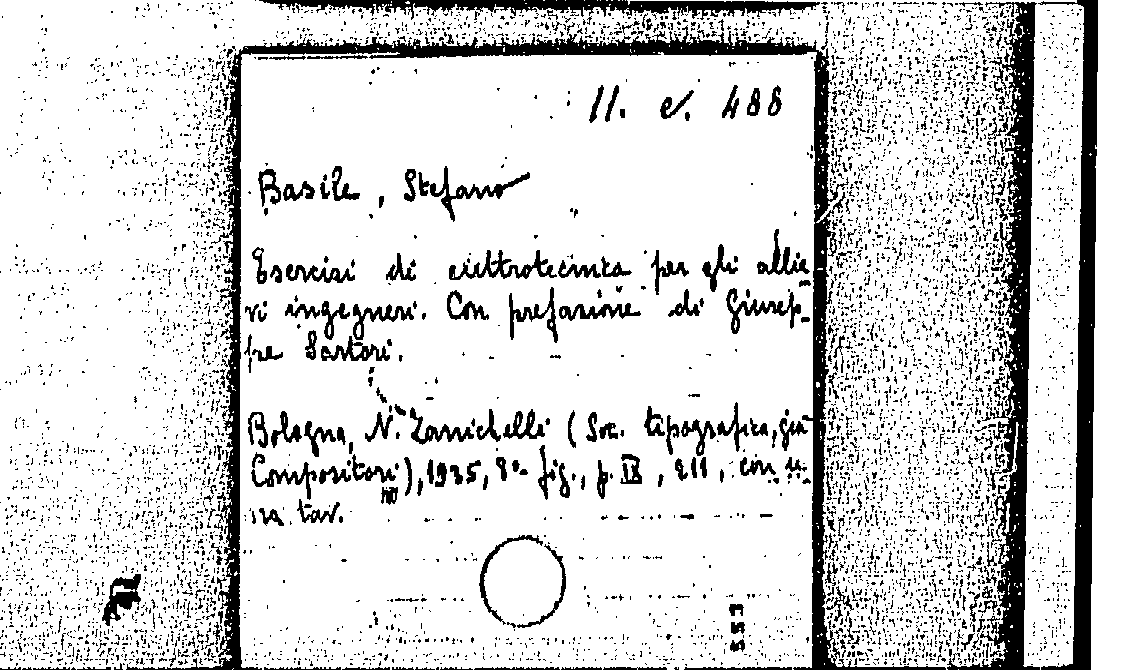 11. c. 488
Basile, Stefano
Esercizi di elettrotecnica per gli allie-
vi ingegneri. Con prefazione di Giusep-
pe Sartori.
Bologna, N. Zanichelli (Soc. tipografica, già
Compositori), 1935, 8º fig., p. IX, 211, con u-
na tav.